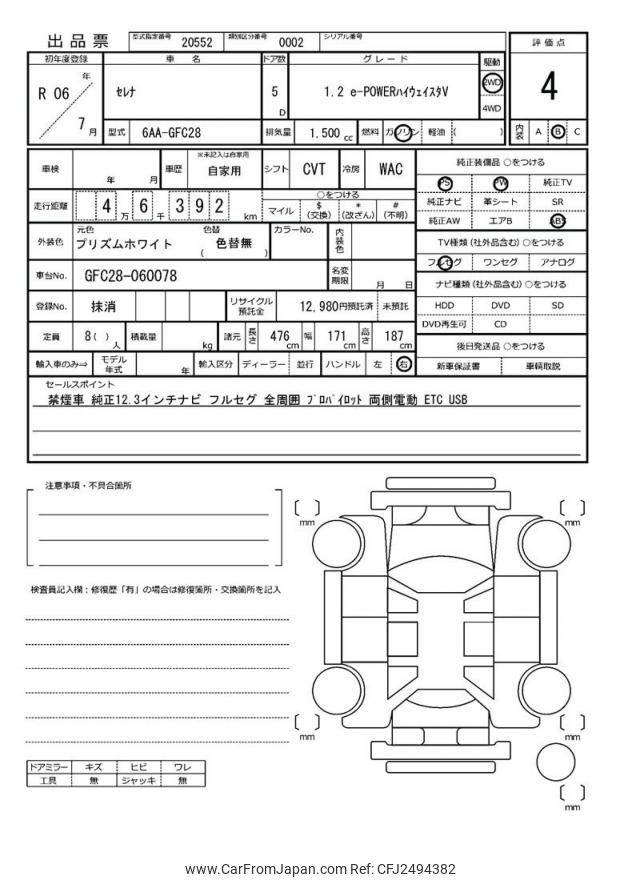 出品票 型式指定番号 20552 類別区分番号 0002 シリアル番号
初年度登録 車名 ドア数 グレード 駆動 評価点
R 06 年 7 月 セレナ 5 D 1.2 e-POWERハイウェイスタV 2WD 4WD 4
型式 6AA-GFC28 排気量 1.500 cc 燃料 ガソリン 軽油 ( ) 内装 A B C
車検 年 月 車歴 ※未記入は自家用 自家用 シフト CVT 冷房 WAC 純正装備品 ○をつける
PS PW 純正TV
走行距離 4 万 6 千 3 9 2 km ○をつける マイル $ (交換) * (改ざん) # (不明) 純正ナビ 革シート SR
純正AW エアB ABS
外装色 元色 プリズムホワイト 色替 ( 色替無 ) カラーNo. 内装色 TV種類 (社外品含む) ○をつける
フルセグ ワンセグ アナログ
車台No. GFC28-060078 名変期限 月 日 ナビ種類 (社外品含む) ○をつける
登録No. 抹消 リサイクル預託金 12,980円預託済 未預託 HDD DVD SD
DVD再生可 CD
定員 8( ) 人 積載量 kg 諸元 長さ 476 cm 幅 171 cm 高さ 187 cm 後日発送品 ○をつける
輸入車のみ⇒ モデル年式 年 輸入区分 ディーラー 並行 ハンドル 左 右 新車保証書 車輌取説
セールスポイント
禁煙車 純正12.3インチナビ フルセグ 全周囲 プロパイロット 両側電動 ETC USB
注意事項・不具合箇所
mm mm
検査員記入欄：修復歴「有」の場合は修復箇所・交換箇所を記入
mm mm
ドアミラー キズ ヒビ ワレ
工具 無 ジャッキ 無
mm
www.CarFromJapan.com Ref: CFJ2494382